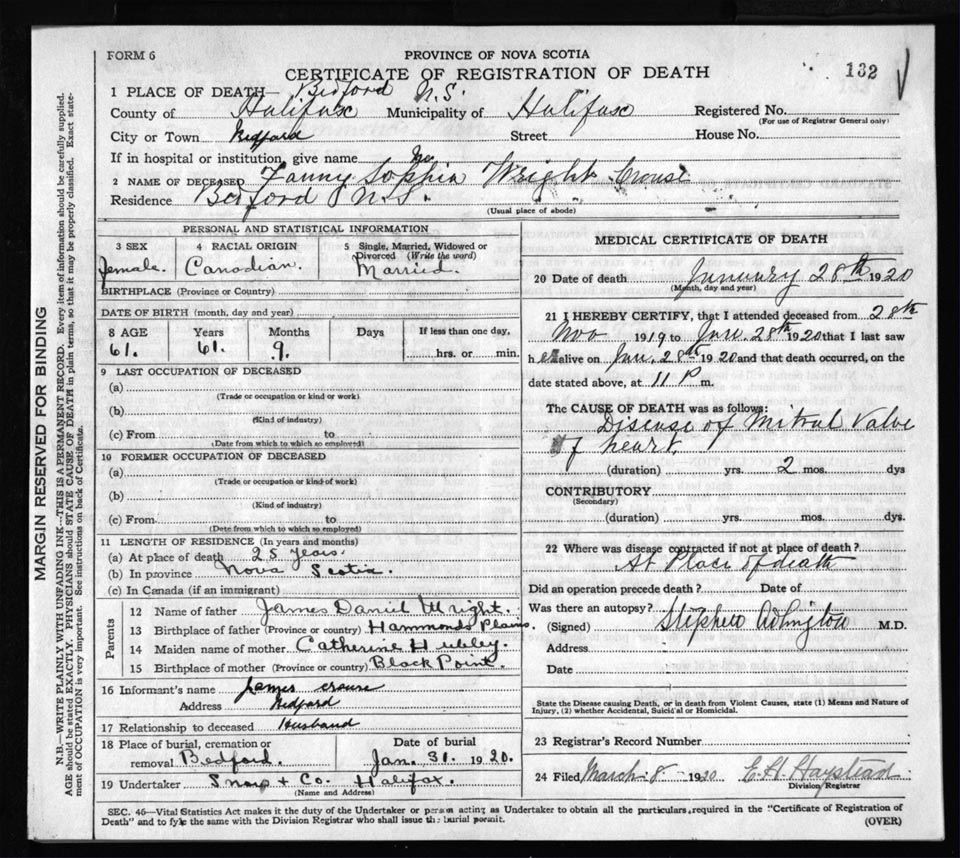 FORM 6
PROVINCE OF NOVA SCOTIA
CERTIFICATE OF REGISTRATION OF DEATH
132
1 PLACE OF DEATH— Bedford N.S.
County of Halifax Municipality of Halifax Registered No.
(For use of Registrar General only)
City or Town Bedford Street House No.
If in hospital or institution, give name
2 NAME OF DECEASED Fanny Sophia Wright Crouse
Residence Bedford N.S.
(Usual place of abode)
PERSONAL AND STATISTICAL INFORMATION
3 SEX 4 RACIAL ORIGIN 5 Single, Married, Widowed or
Divorced (Write the word)
female. Canadian. Married.
BIRTHPLACE (Province or Country)
DATE OF BIRTH (month, day and year)
8 AGE Years Months Days If less than one day,
61. 61. 9. hrs. or min.
9 LAST OCCUPATION OF DECEASED
(a)
(Trade or occupation or kind or work)
(b)
(Kind of industry)
(c) From to
(Date from which to which so employed)
10 FORMER OCCUPATION OF DECEASED
(a)
(Trade or occupation or kind of work)
(b)
(Kind of industry)
(c) From to
(Date from which to which so employed)
11 LENGTH OF RESIDENCE (In years and months)
(a) At place of death 25 years.
(b) In province Nova Scotia.
(c) In Canada (if an immigrant)
Parents
12 Name of father James Daniel Wright.
13 Birthplace of father (Province or country) Hammonds Plains.
14 Maiden name of mother Catherine Hubley.
15 Birthplace of mother (Province or country) Black Point.
16 Informant's name James Crouse
Address Bedford
17 Relationship to deceased Husband
18 Place of burial, cremation or Date of burial
removal Bedford. Jan. 31. 1920.
19 Undertaker Snow + Co. Halifax.
(Name and Address)
MEDICAL CERTIFICATE OF DEATH
20 Date of death January 28th 1920
(Month, day and year)
21 I HEREBY CERTIFY, that I attended deceased from 28th
Nov 1919 to Jan. 28th 1920 that I last saw
h er alive on Jan. 28th 1920 and that death occurred, on the
date stated above, at 11 P m.
The CAUSE OF DEATH was as follows:
Disease of Mitral Valve
of heart.
(duration) yrs. 2 mos. dys
CONTRIBUTORY
(Secondary)
(duration) yrs. mos. dys.
22 Where was disease contracted if not at place of death?
At Place of death
Did an operation precede death? Date of
Was there an autopsy?
(Signed) Stephen Adlington M.D.
Address
Date
State the Disease causing Death, or in death from Violent Causes, state (1) Means and Nature of
Injury, (2) whether Accidental, Suicidal or Homicidal.
23 Registrar's Record Number
24 Filed March 8 1920 E. H. Haystead
Division Registrar
SEC. 46—Vital Statistics Act makes it the duty of the Undertaker or person acting as Undertaker to obtain all the particulars, required in the "Certificate of Registration of
Death" and to file the same with the Division Registrar who shall issue the burial permit. (OVER)
MARGIN RESERVED FOR BINDING
N.B.—WRITE PLAINLY WITH UNFADING INK—THIS IS A PERMANENT RECORD. Every item of information should be carefully supplied.
AGE should be stated EXACTLY. PHYSICIANS should STATE CAUSE OF DEATH in plain terms, so that it may be properly classified. Exact state-
ment of OCCUPATION is very important. See instructions on back of Certificate.